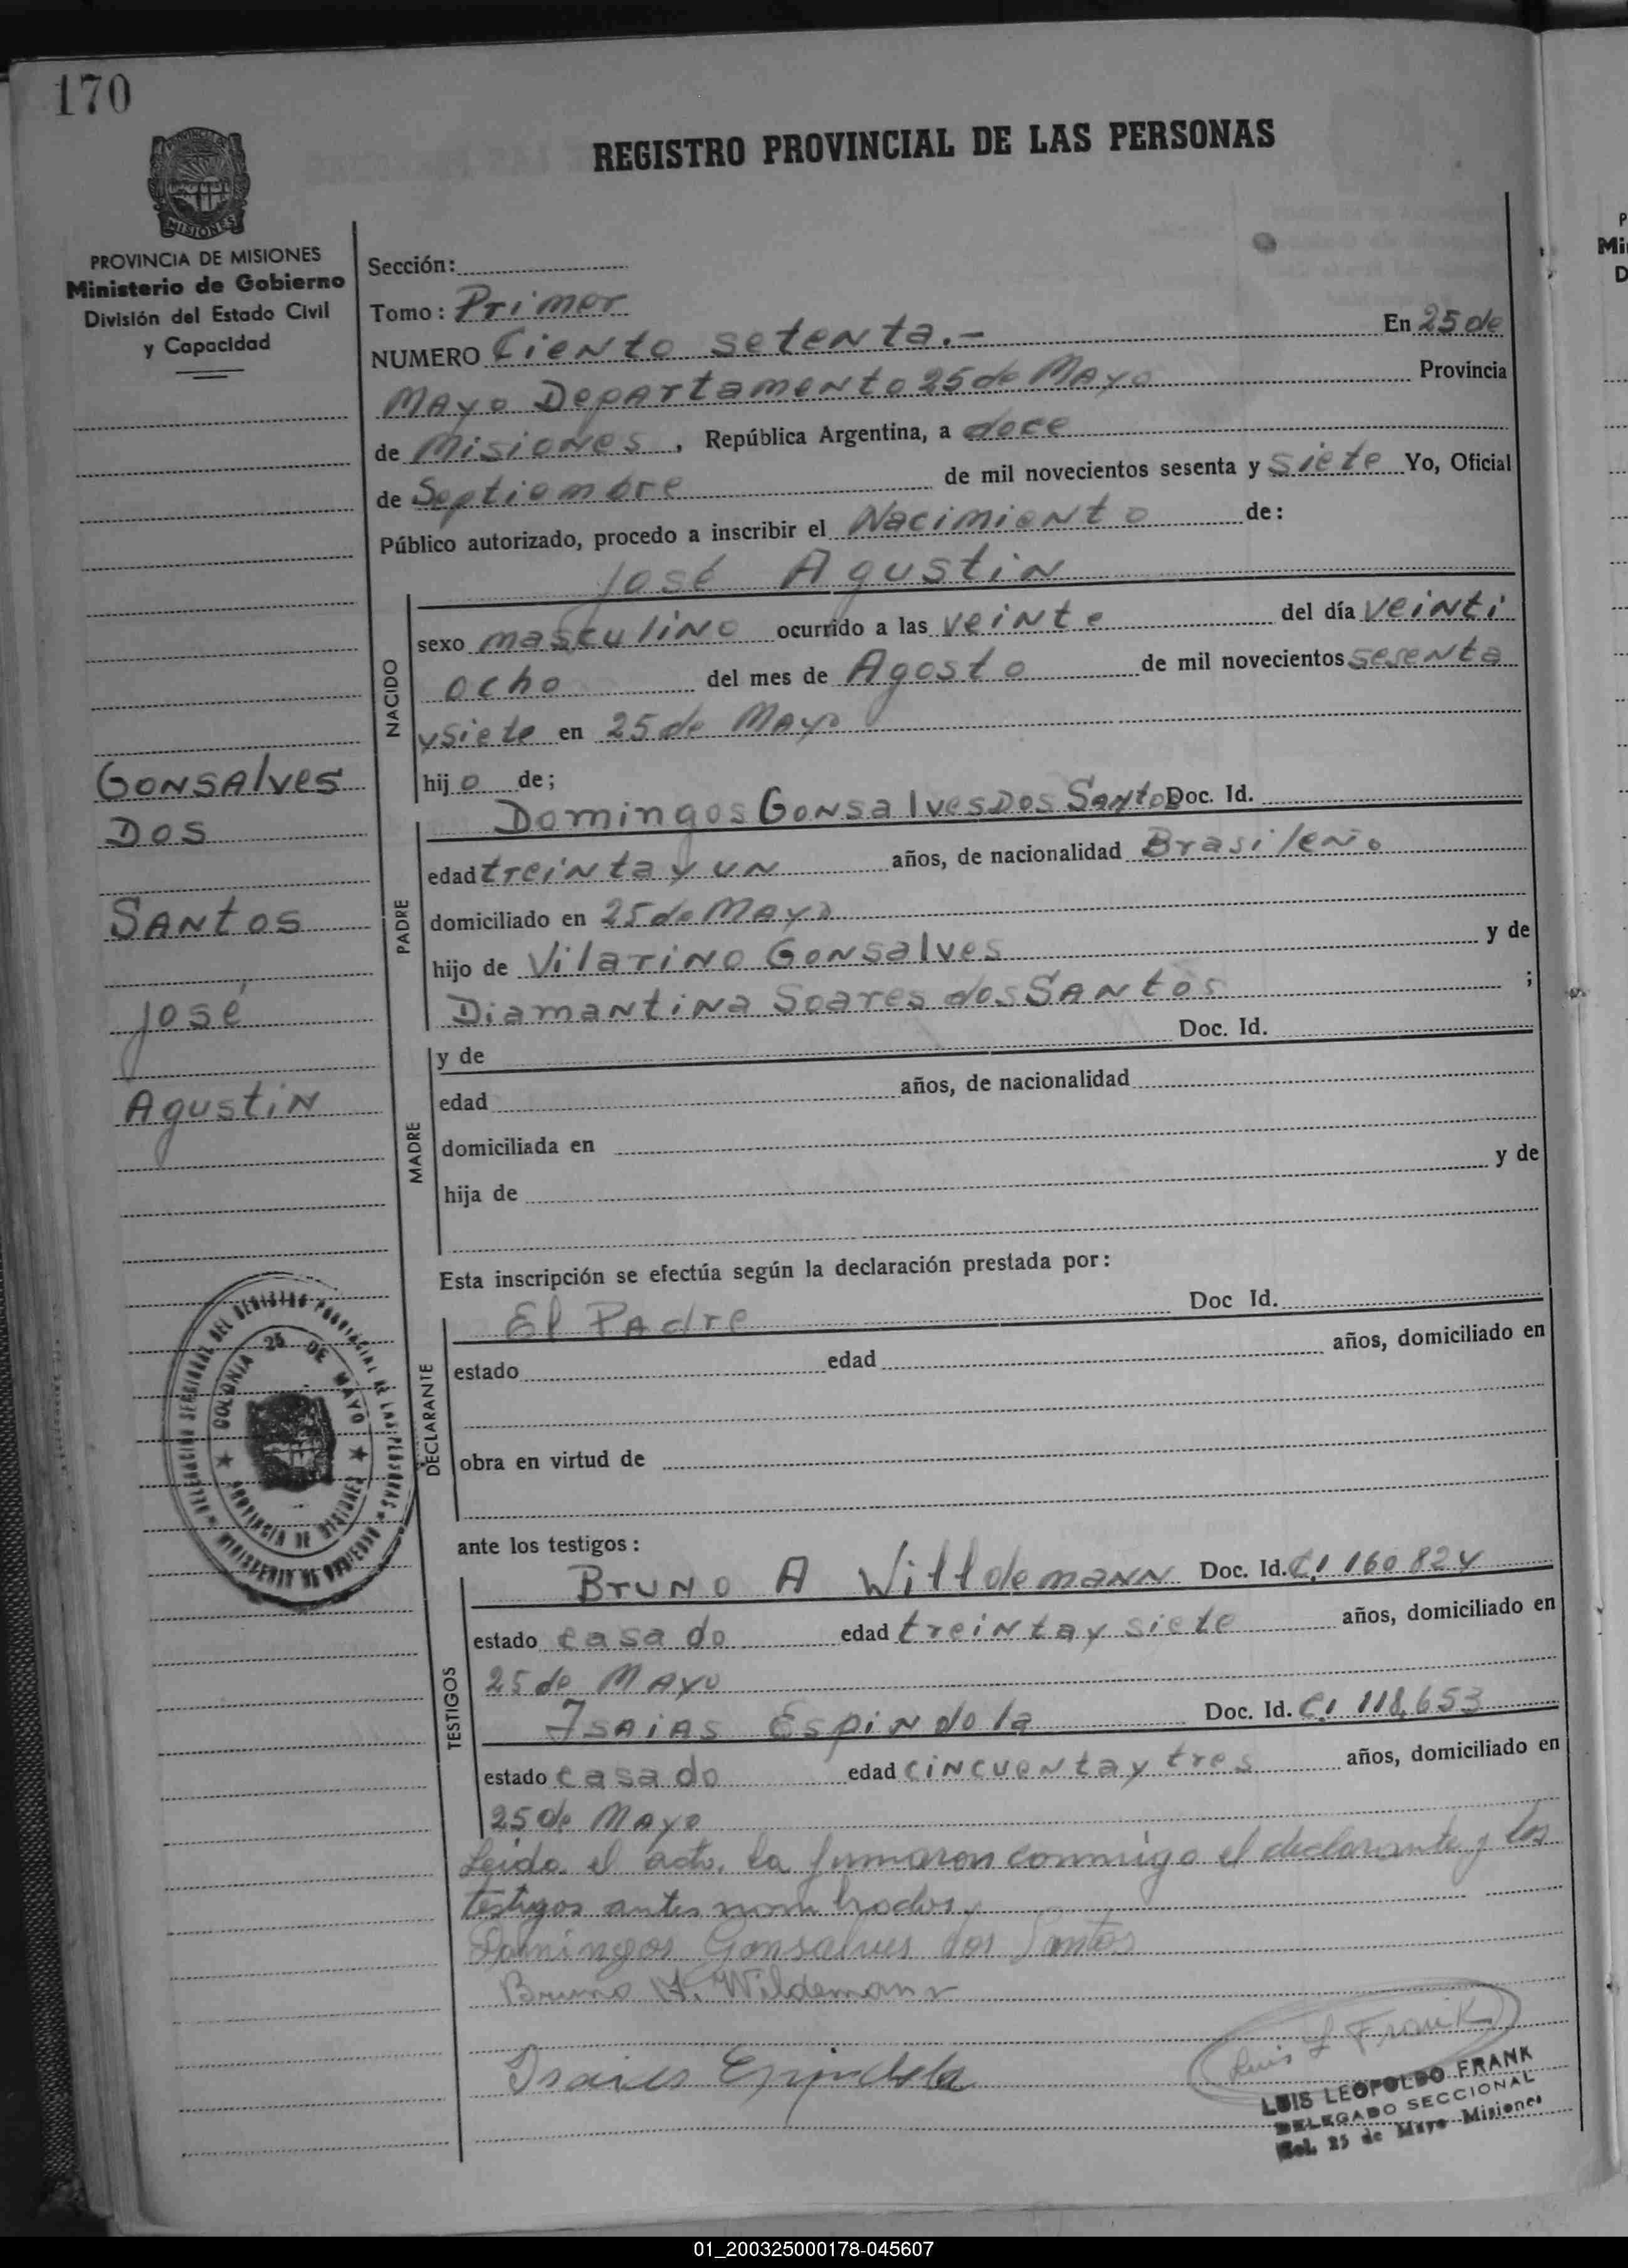 170
REGISTRO PROVINCIAL DE LAS PERSONAS
MISIONES
PROVINCIA DE MISIONES
Ministerio de Gobierno
División del Estado Civil
y Capacidad
Sección:
Tomo: Primer
NUMERO Ciento setenta.- En 25 de
Mayo Departamento 25 de Mayo Provincia
de Misiones, República Argentina, a doce
de Septiembre de mil novecientos sesenta y siete Yo, Oficial
Público autorizado, procedo a inscribir el Nacimiento de:
José Agustin
NACIDO
sexo masculino ocurrido a las veinte del día veinti
ocho del mes de Agosto de mil novecientos sesenta
y siete en 25 de Mayo
hijo de;
Gonsalves
Dos
Santos
José
Agustin
Domingos Gonsalves Dos Santos Doc. Id.
PADRE
edad treinta y un años, de nacionalidad Brasileño
domiciliado en 25 de Mayo
hijo de Vilarino Gonsalves y de
Diamantina Soares dos Santos ;
MADRE
y de Doc. Id.
edad años, de nacionalidad
domiciliada en
hija de y de
Esta inscripción se efectúa según la declaración prestada por:
El Padre Doc Id.
DECLARANTE
estado edad años, domiciliado en
obra en virtud de
DELEGACION SECCIONAL DEL REGISTRO PROVINCIAL DE LAS PERSONAS
MINISTERIO DE GOBIERNO
COLONIA 25 DE MAYO
PROVINCIA DE MISIONES
ante los testigos:
TESTIGOS
Bruno A Willdemann Doc. Id. C.I 160.824
estado casado edad treinta y siete años, domiciliado en
25 de Mayo
Isaias Espindola Doc. Id. C.I 118.653
estado casado edad cincuenta y tres años, domiciliado en
25 de Mayo
Leida el acta, la firmaron conmigo el declarante y los
testigos antes nombrados.
Domingos Gonsalves dos Santos
Bruno A. Wildemann
Isaias Espindola
Luis L Frank
LUIS LEOPOLDO FRANK
DELEGADO SECCIONAL
Col. 25 de Mayo - Misiones
01_200325000178-045607